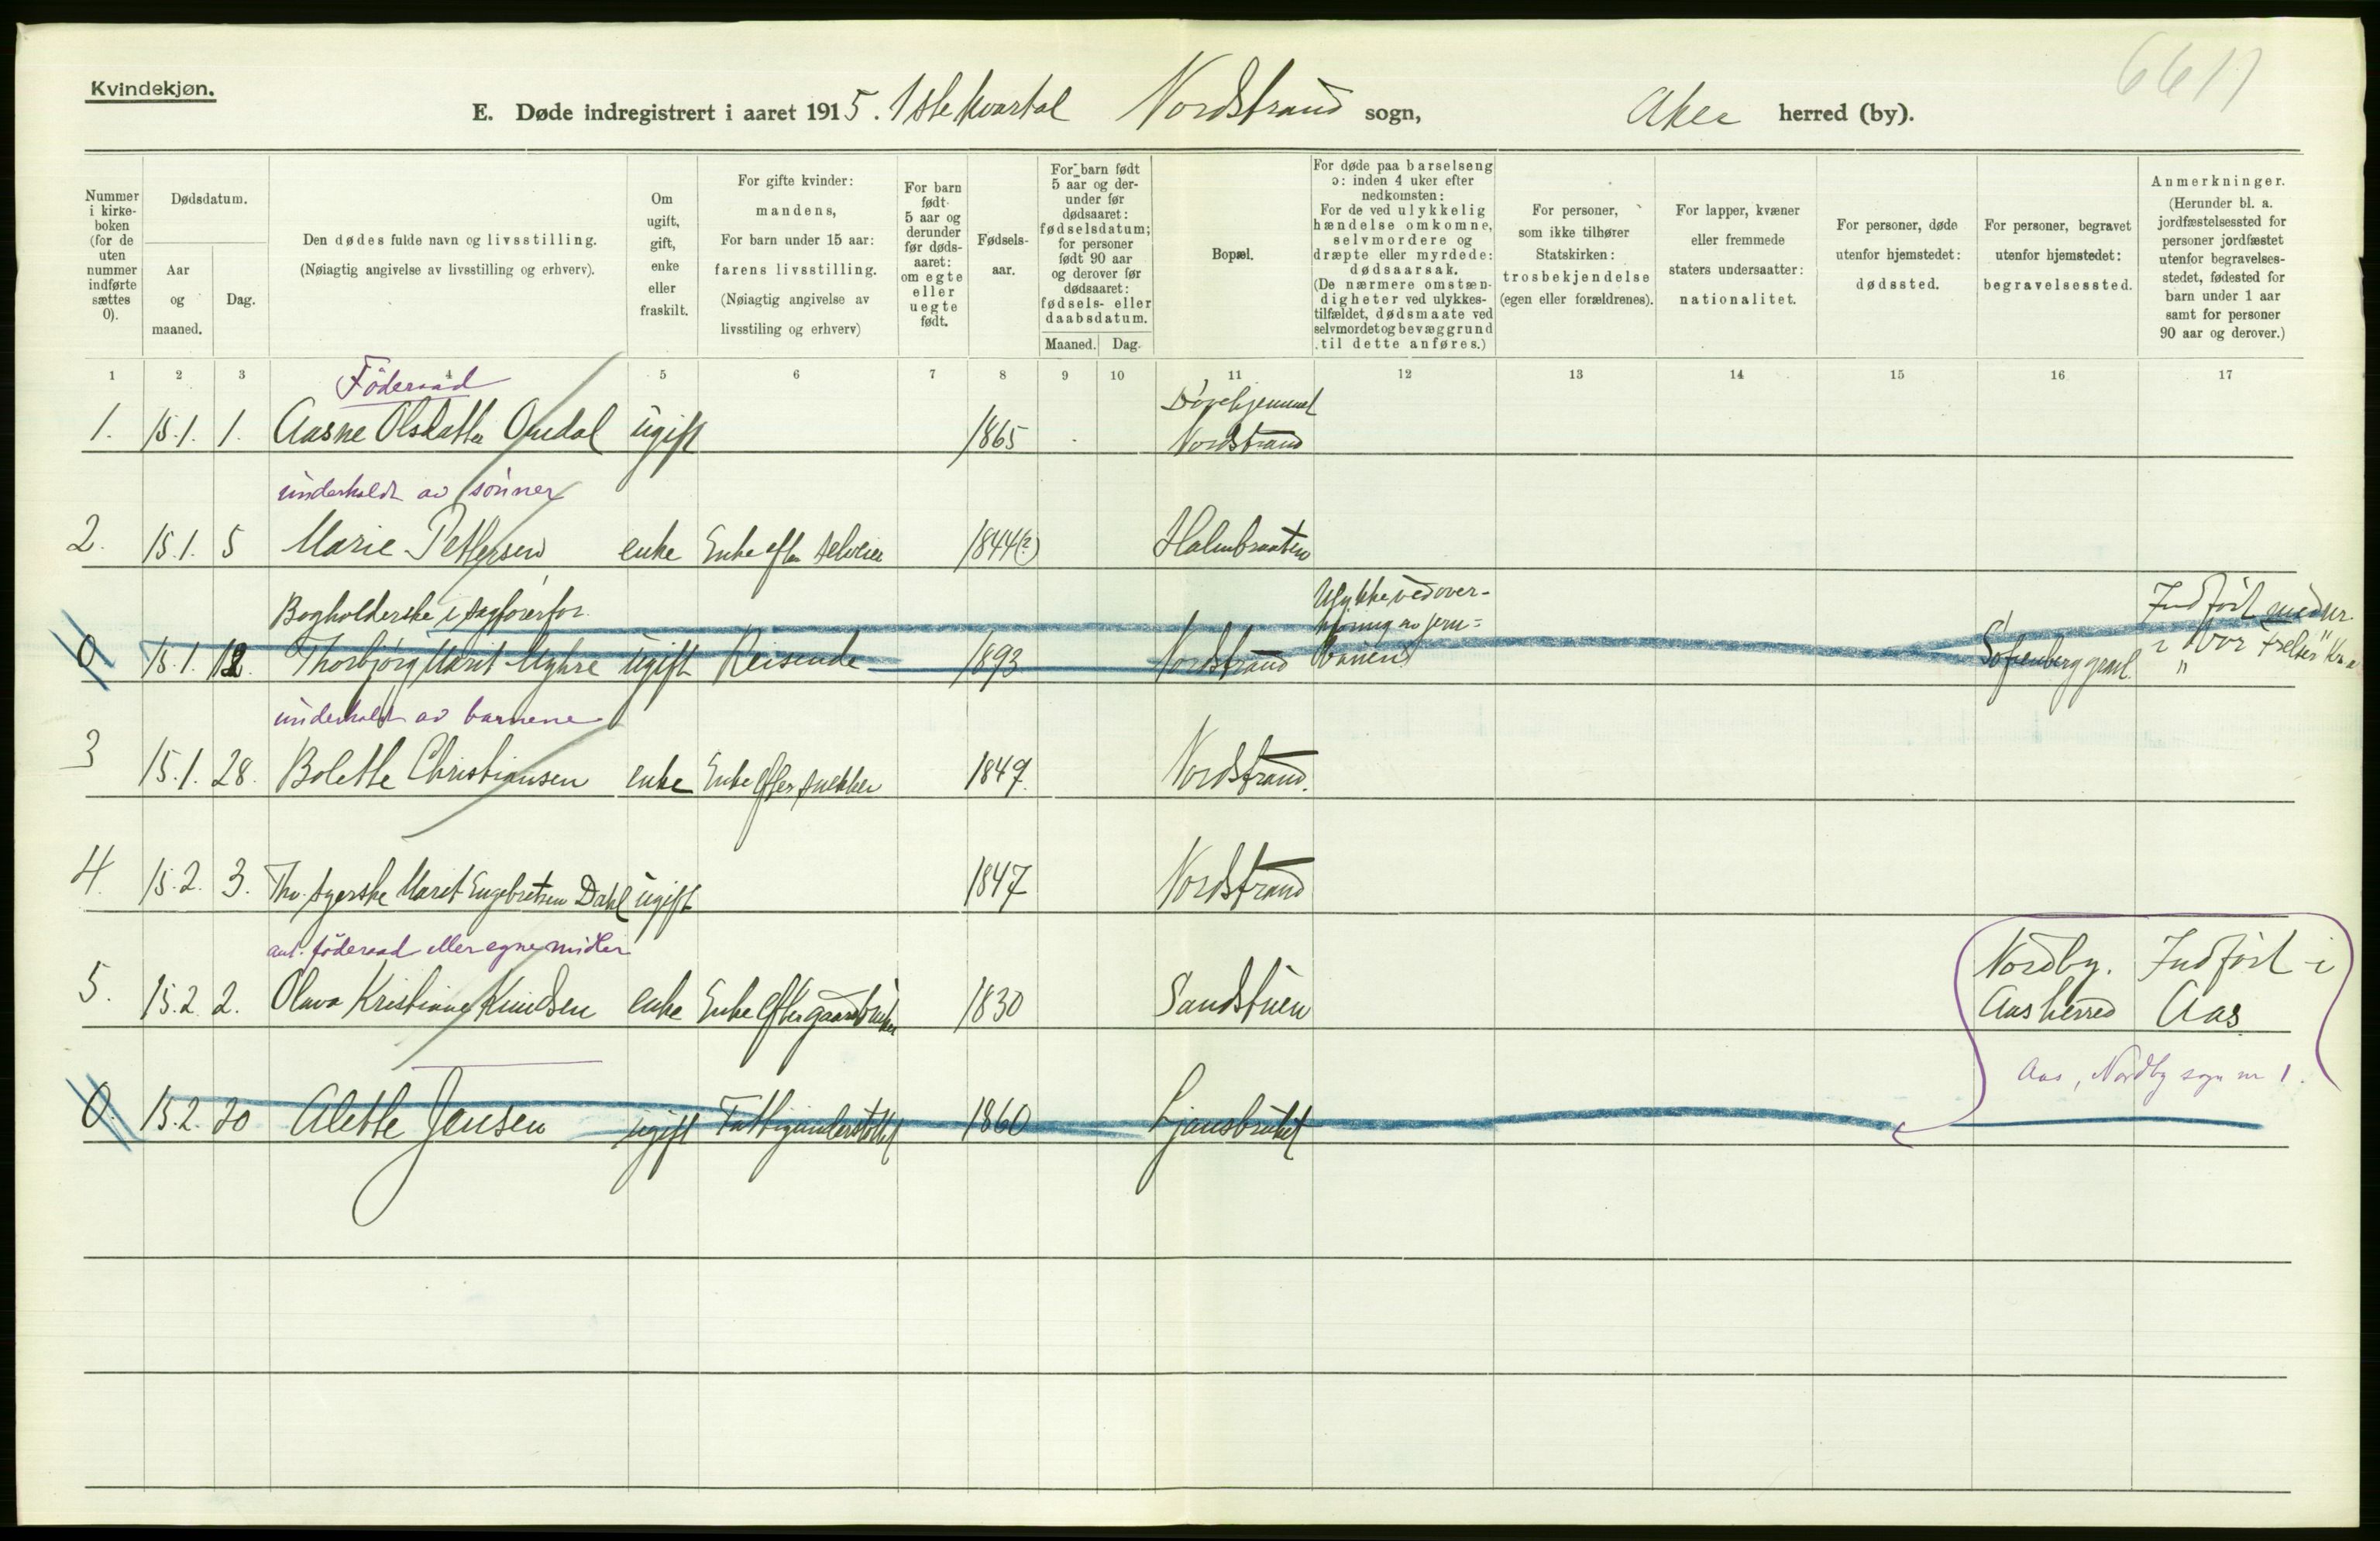 6611
Kvindekjøn.
E. Døde indregistrert i aaret 1915. 1ste kvartal Nordstrand sogn, Aker herred (by).
Nummer i kirkeboken (for de uten nummer indførte sættes 0).
Dødsdatum.
Aar og maaned.
Dag.
Den dødes fulde navn og livsstilling.
(Nøiagtig angivelse av livsstilling og erhverv).
Om ugift, gift, enke eller fraskilt.
For gifte kvinder: mandens,
For barn under 15 aar: farens livsstilling.
(Nøiagtig angivelse av livsstiling og erhverv)
For barn født 5 aar og derunder før dødsaaret: om egte eller uegte født.
Fødselsaar.
For barn født 5 aar og derunder før dødsaaret: fødselsdatum; for personer født 90 aar og derover før dødsaaret: fødsels- eller daabsdatum.
Maaned. Dag.
Bopæl.
For døde paa barselseng ɔ: inden 4 uker efter nedkomsten:
For de ved ulykkelig hændelse omkomne, selvmordere og dræpte eller myrdede: dødsaarsak.
(De nærmere omstændigheter ved ulykkestilfældet, dødsmaate ved selvmordet og bevæggrund til dette anføres.)
For personer, som ikke tilhører Statskirken: trosbekjendelse (egen eller forældrenes).
For lapper, kvæner eller fremmede staters undersaatter: nationalitet.
For personer, døde utenfor hjemstedet: dødssted.
For personer, begravet utenfor hjemstedet: begravelsessted.
Anmerkninger.
(Herunder bl. a. jordfæstelsessted for personer jordfæstet utenfor begravelsesstedet, fødested for barn under 1 aar samt for personer 90 aar og derover.)
1 2 3 4 5 6 7 8 9 10 11 12 13 14 15 16 17
Föderaad
Døvehjemmet
1. 15.1. 1. Aasne Olsdatter Omdal ugift 1865 Nordstrand
underholdt av sønner
2. 15.1. 5 Marie Pettersen enke Enke efter selveier 1844(?) Holmbraaten
Bogholderske i sagførerfor. Ulykke ved over- Indført med nr.
kjøring av jern= i "Vor Frelser" Kr.a
0 15.1. 12. Thorbjørg Marit Myhre ugift Reisende 1893 Nordstrand banen Sofienberg gravl. "
underholdt av barnene
3 15.1. 28. Bolette Christiansen enke Enke efter snekker 1849. Nordstrand.
4. 15.2. 3. Fhv. syerske Marit Engebretsen Dahl ugift 1847 Nordstrand
ant. föderaad eller egne midler Nordby. Indført i
5. 15.2 2. Olava Kristiane Knudsen enke Enke efter gaardbruker 1830 Sandstuen Aas herred Aas
Aas, Nordby sogn nr 1.
0. 15.2. 20 Alette Jensen ugift Fattigunderstøttet 1860 Ljansbruket